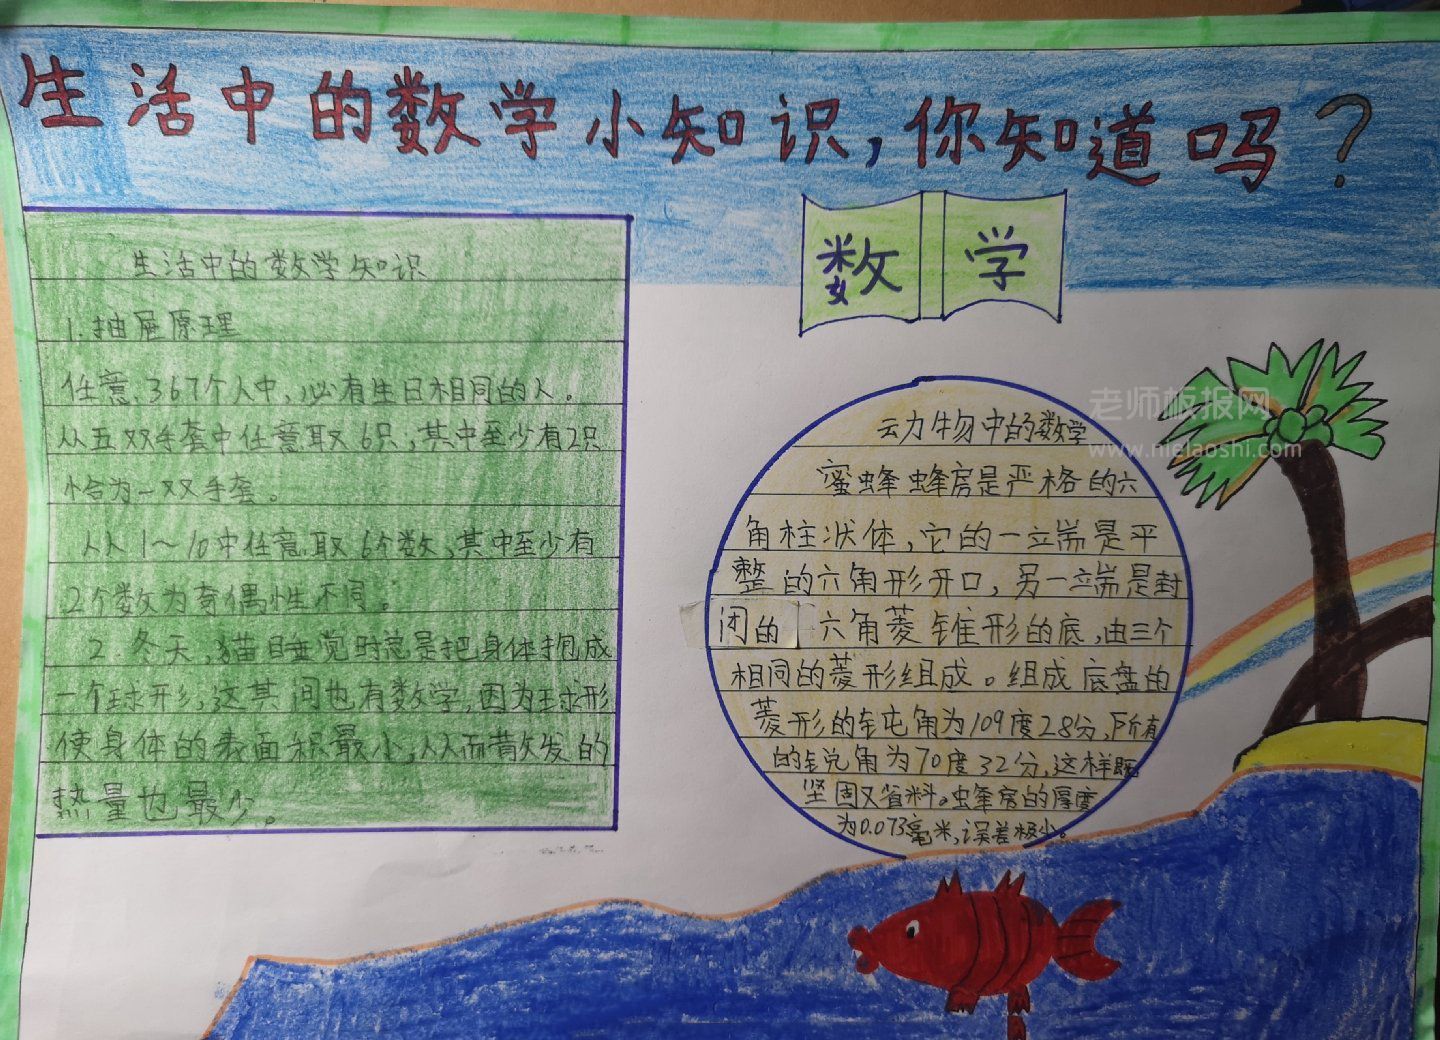 生活中的数学小知识，你知道吗？
数学
生活中的数学知识
1.抽屉原理
任意367个人中，必有生日相同的人。
从五双手套中任意取6只，其中至少有2只
恰为一双手套。
从1～10中任意取6个数，其中至少有
2个数为奇偶性不同。
2.冬天，猫睡觉时总是把身体抱成
一个球形，这其间也有数学，因为球形
使身体的表面积最小，从而散发的
热量也最少。
动物中的数学
蜜蜂蜂房是严格的六
角柱状体，它的一端是平
整的六角形开口，另一端是封
闭的六角菱锥形的底，由三个
相同的菱形组成。组成底盘的
菱形的钝角为109度28分，所有
的锐角为70度32分，这样既
坚固又省料。蜂房的厚度
为0.073毫米，误差极小。
老师板报网
www.nielaoshi.com